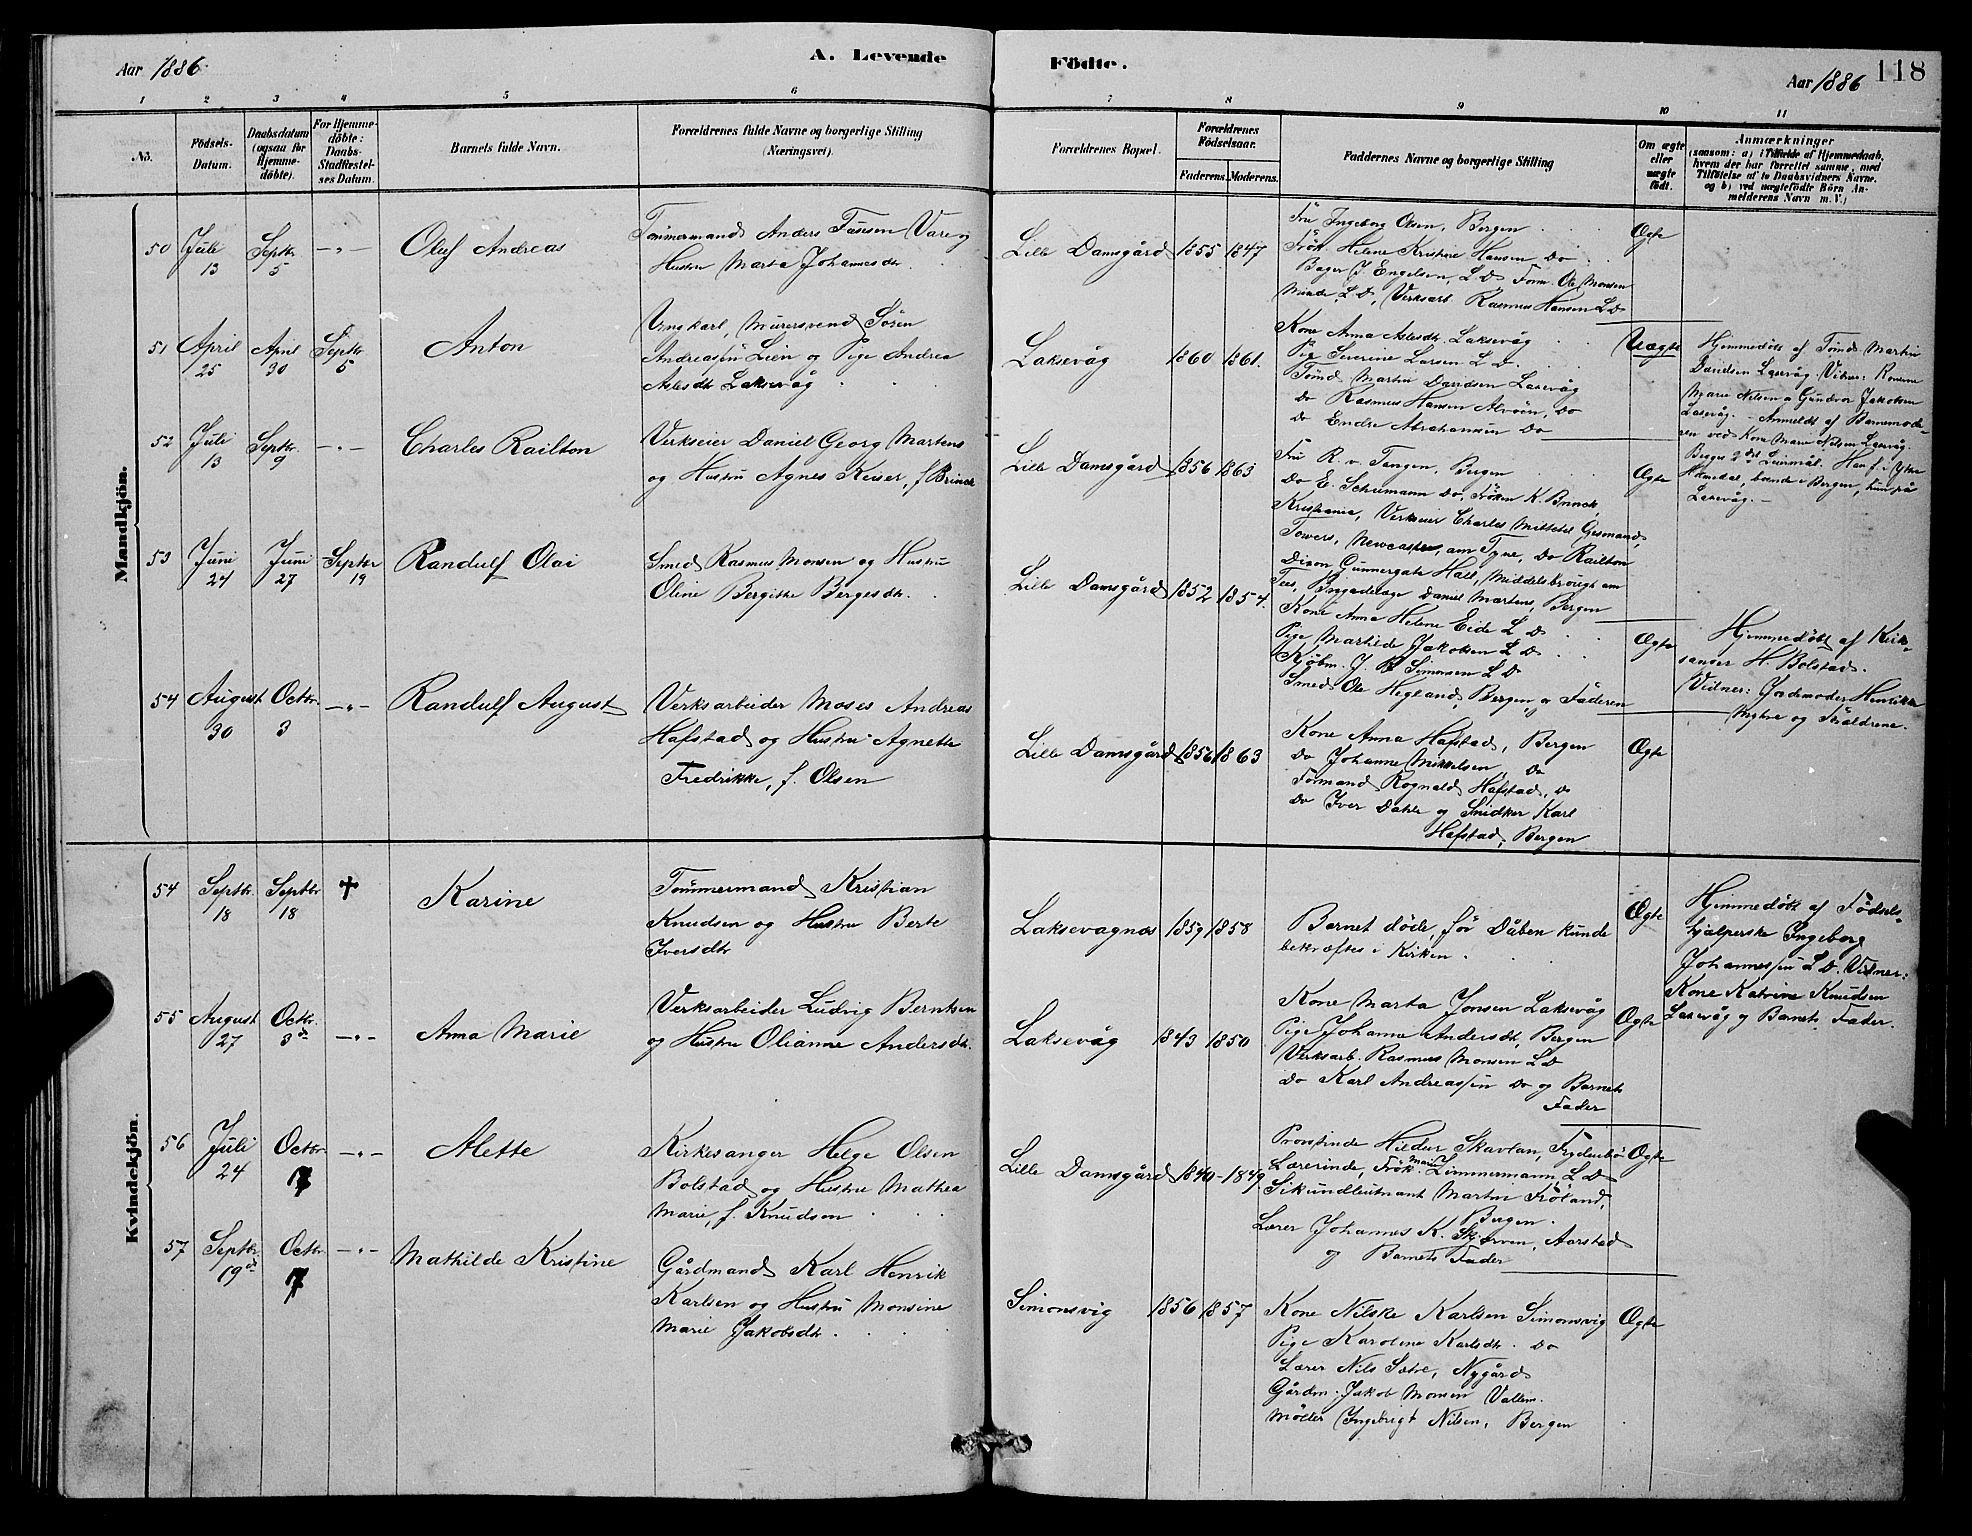 Aar 1886.
A. Levende
Födte.
Aar 1886
118
1
2
3
4
5
6
7
8
9
10
11
No.
Födsels-
Datum.
Daabsdatum
(ogsaa for
Hjemme-
döbte).
For Hjemme-
döbte:
Daabs-
Stadfæstel-
ses Datum.
Barnets fulde Navn.
Forældrenes fulde Navne og borgerlige Stilling
(Næringsvei).
Forældrenes Bopæl.
Forældrenes
Födselsaar.
Faderens.
Moderens.
Faddernes Navne og borgerlige Stilling
Om ægte
eller
uægte
födt.
Anmærkninger
(saasom: a) i Tilfælde af Hjemmedaab,
hvem der har forrettet samme, med
Tilföielse af to Daabsvidners Navne.
og b) ved uægtefödte Börn An-
melderens Navn m. V.)
Mandkjön.
50
Juli
13
Septbr
5
Oluf Andreas
Tømmermand Anders Vare og
Hustru Marta Johannesdtr.
Lille Damsgård
1855
1847
Fru Ingeborg Olsen, Bergen
Frök. Helene Kristine Hansen Do
Bager J. Engelsen, L D, Form. Ole Monsen
Minde, L D, Verksarb. Rasmus Hansen L D
Ægte
51
April
25
April
30
Septbr
5
Anton
Ungkarl, Murersvend Sören
Andreassen Lien og Pige Andrea
Aslesdtr Laksevåg
Laksevåg
1860
1861.
Kone Anna Aslesdtr. Laksevåg
Pige Severine Larsen L D.
Tömd Martin Davidsen Laxevåg
Do Rasmus Hansen Alvöen, Do
Do Endre Abrahamsen Do
Uægte
Hjemmedöbt af Tömd. Martin
Davidsen Laxevåg. Vidner: Konerne
Marie Nilsen og Gundvor Jakobsen
Laxevåg. – Anmeldt af Barnemode-
ren ved Kone Marie Nilsen Laxevåg.
Begges 2det Leiermål. Han f. i Ytre
Holmedal, boende i Bergen, hun på
Laxevåg. –
52
Juli
13
Septbr
9
Charles Railton
Verkseier Daniel Georg Martens
og Hustru Agnes Keiser, f. Brinck
Lille Damsgård
1856
1863
Fru R. v. Tangen, Bergen
Do E. Schumann Do, Fröken K. Brinck,
Kristiania, Verkseier Charles Mitchel
Towers, Newcastle am Tyne, Do Railton
Dixon Gunnergate Hall, Middelsbrough am
Tees, Brigadelæge Daniel Martens, Bergen
Ægte
53
Juni
24
Juni
27
Septbr
19
Randulf Olai
Smed Rasmus Monsen og Hustru
Oline Bergitte Bergesdtr.
Lille Damsgård
1852
1854.
Kone Anna Helene Eide L D
Pige Martilde Jakobsen L D
Kjöbm. J. B. Simonsen L D
Smed Ole Hegland, Bergen, og Faderen
Ægte
Hjemmedöbt af Kirk-
sanger H. Bolstad.
Vidner: Jordemoder Henrikke
Myhre og Fældrene.
54
August
30
Octbr
3
Randulf August
Verksarbeider Moses Andreas
Hafstad og Hustru Agnethe
Fredrikke, f. Olsen
Lille Damsgård
1856
1863
Kone Anna Hafstad, Bergen
Do Johanne Mikkelsen, Do
Formand Rognald Hafstad, Do
Do Iver Dahle og Snidker Karl
Hafstad, Bergen
Ægte
Kvindekjön.
54
Septbr.
18
Septbr
18
✝
Karine
Tömmermand Kristian
Knudsen og Hustru Berte
Iversdtr
Laksevagnæs
1859
1858
Barnet döde, för Dåben kunde
bekræftes i Kirken.
Ægte
Hjemmedöbt af Födsels-
hjælperske Ingeborg
Johannessen L D. Vidner:
Kone Katrine Knudsen
Laxevåg og Barnets Fader.
55
August
27
Octbr.
3
Anna Marie
Verksarbeider Ludvig Berntsen
og Hustru Olianne Andersdtr.
Laksevåg
1843
1850
Kone Marta Jonsen Laksevåg
Pige Johanna Andersdtr, Bergen
Verksarb. Rasmus Monsen L D
Do Karl Andreassen Do og Barnets
Fader
Ægte
56
Juli
24
Octbr
17
Alette
Kirkesanger Helge Olsen
Bolstad og Hustru Mathea
Marie, f. Knudsen
Lille Damsgård
1840
1849
Provstinde Hildur Skavlan, Frydenbø
Lærerinde, Frök. Marie Zimmermann, L D
Sekundleutnant Martin Fröland,
Bergen.
Lærer Johannes K. Skjerven, Aarstad
og Barnets Fader
Ægte
57
Septbr.
19
Octbr
17
Mathilde Kristine
Gårdmand Karl Henrik
Karlsen og Hustru Monsine
Marie Jakobsdtr.
Simonsvig
1856
1857
Kone Nilske Karlsen Simonsvig
Pige Karoline Karlsdtr. Do
Lærer Nils Sætre, Nygård
Gårdm. Jakob Monsen Vallem.
Möller Ingebrigt Nilsen, Bergen
Ægte